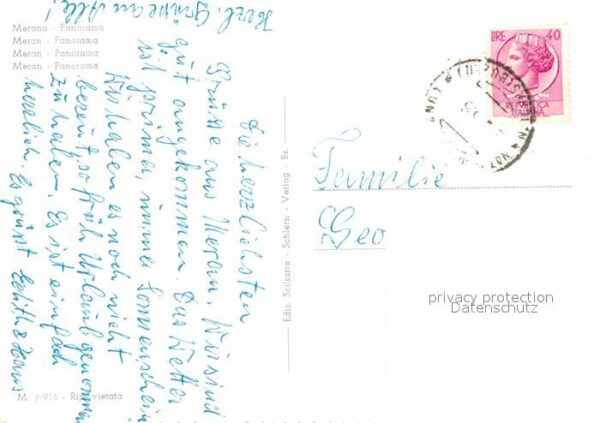 Merano - Panorama
Meran - Panorama
Meran - Panorama
Meran - Panorama
Herzl. Grüsse an Alle!
Die herzlichsten
Grüsse aus Meran. Wir sind
gut angekommen. Das Wetter
ist prima, immer Sonnenschein
Wir haben es noch nicht
bereut, so früh Urlaub genommen
zu haben. Es ist einfach
herrlich. Es grüsst Edith & Hans
M. 3-916 - Rip. vietata
Ediz. Sciliario - Schlern - Verlag - Bz.
LIRE 40
REPVBBLICA
ITALIANA
Familie
Geo
privacy protection
Datenschutz